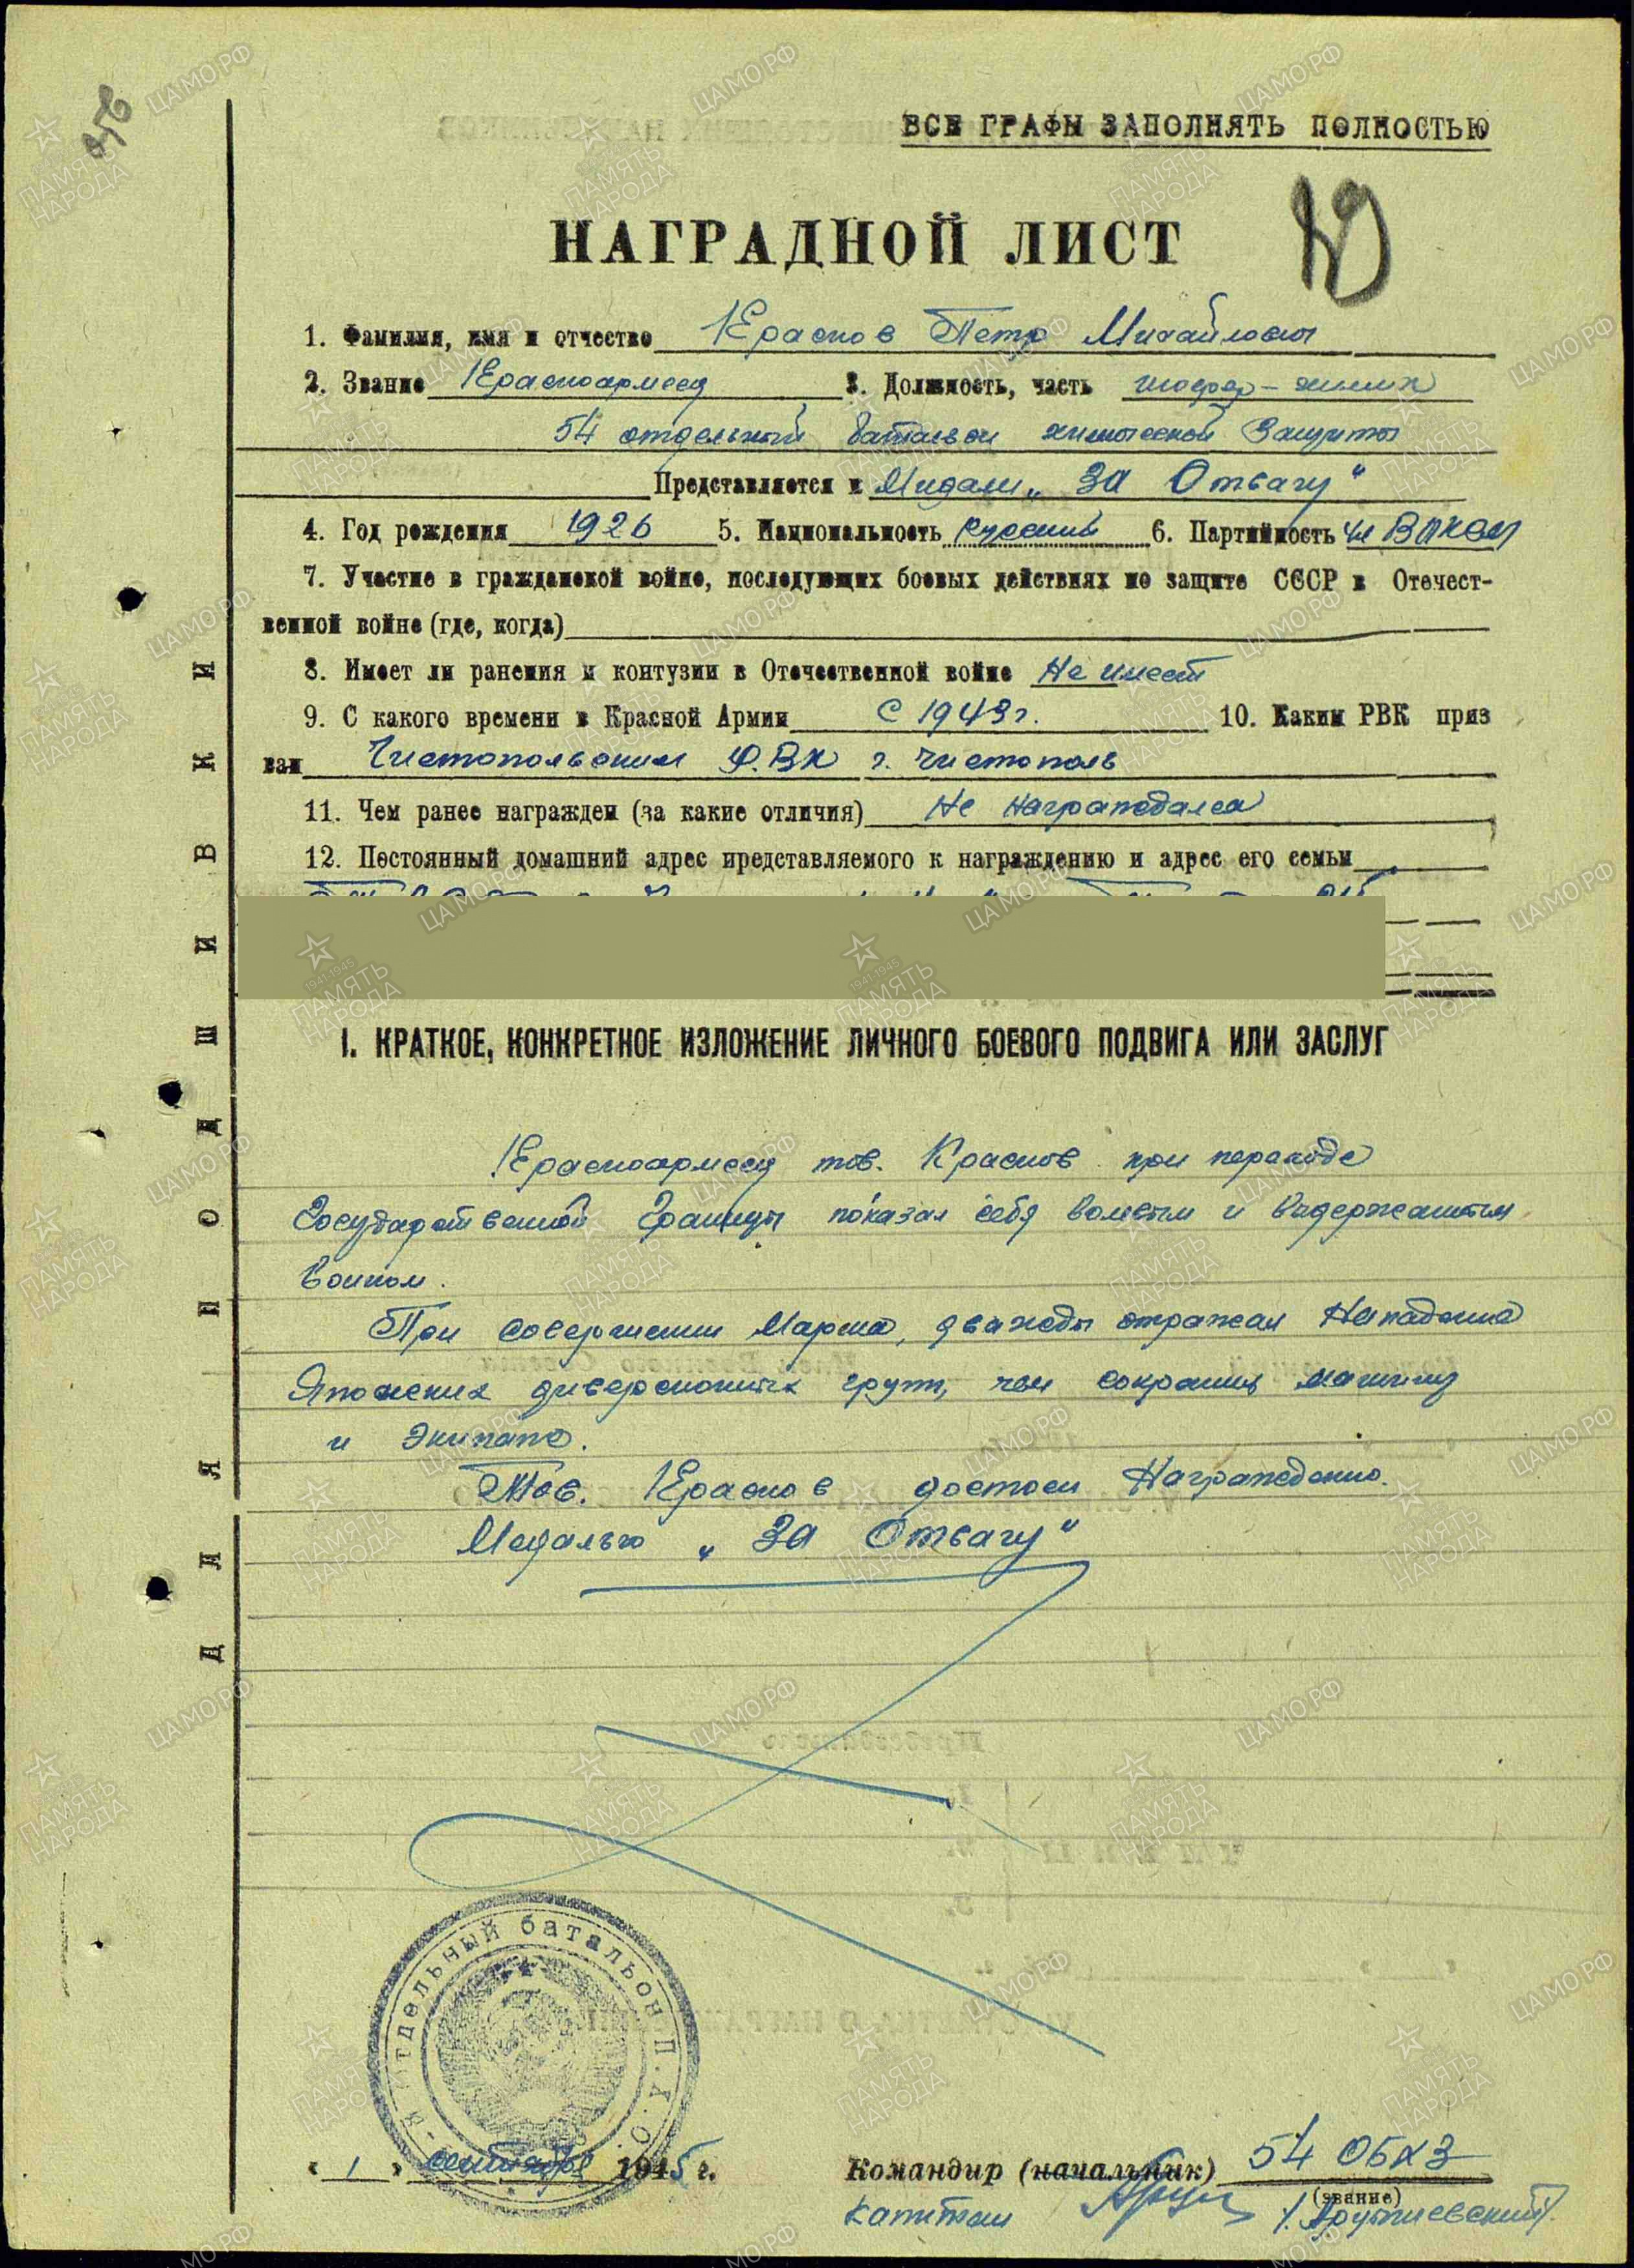 ВСЕ ГРАФЫ ЗАПОЛНЯТЬ ПОЛНОСТЬЮ
НАГРАДНОЙ ЛИСТ
1. Фамилия, имя и отчество Краснов Петр Михайлович
2. Звание Красноармеец 3. Должность, часть шофер-химик
54 отдельный батальон химической Защиты
Представляется к Медали „За Отвагу"
4. Год рождения 1926 5. Национальность русский 6. Партийность чл ВЛКСМ
7. Участие в гражданской войне, последующих боевых действиях по защите СССР и Отечест-
венной войне (где, когда)
8. Имеет ли ранения и контузии в Отечественной войне Не имеет
9. С какого времени в Красной Армии С 1943 г. 10. Каким РВК приз
ван Чистопольским Р.ВК г. Чистополь
11. Чем ранее награжден (за какие отличия) Не Награждался
12. Постоянный домашний адрес представляемого к награждению и адрес его семьи
I. КРАТКОЕ, КОНКРЕТНОЕ ИЗЛОЖЕНИЕ ЛИЧНОГО БОЕВОГО ПОДВИГА ИЛИ ЗАСЛУГ
Красноармеец тов. Краснов при переходе
Государственной Границы показал себя волевым и выдержанным
Воином.
При совершении Марша, дважды отражал Нападения
Японских диверсионных групп, чем сохранил машину
и Экипаж.
Тов. Краснов достоен Награждению.
Медалью „За Отвагу"
отдельный батальон П.Х.О.
« 1 » сентября 1945 г.
Командир (начальник) 54 ОБХЗ
(звание)
Капитан
ДЛЯ ПОДШИВКИ
ПАМЯТЬ НАРОДА
1941-1945
ЦАМО.РФ